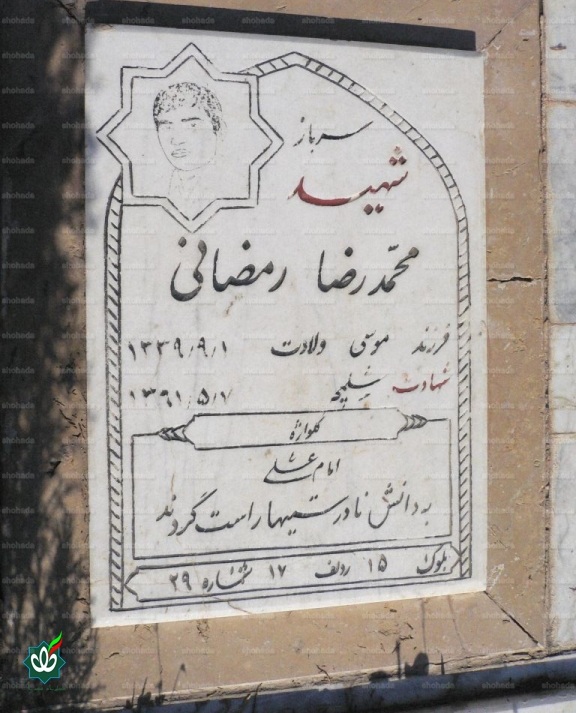 سرباز
شهید
محمدرضا رمضانی
فرزند موسی ولادت ۱۳۳۹/۹/۱
شهادت شلمچه ۱۳۶۱/۵/۷
گهواژه
امام علی
به دانش نادرستیها راست گردند
بلوک ۱۵ ردیف ۱۷ شماره ۲۹
shohada